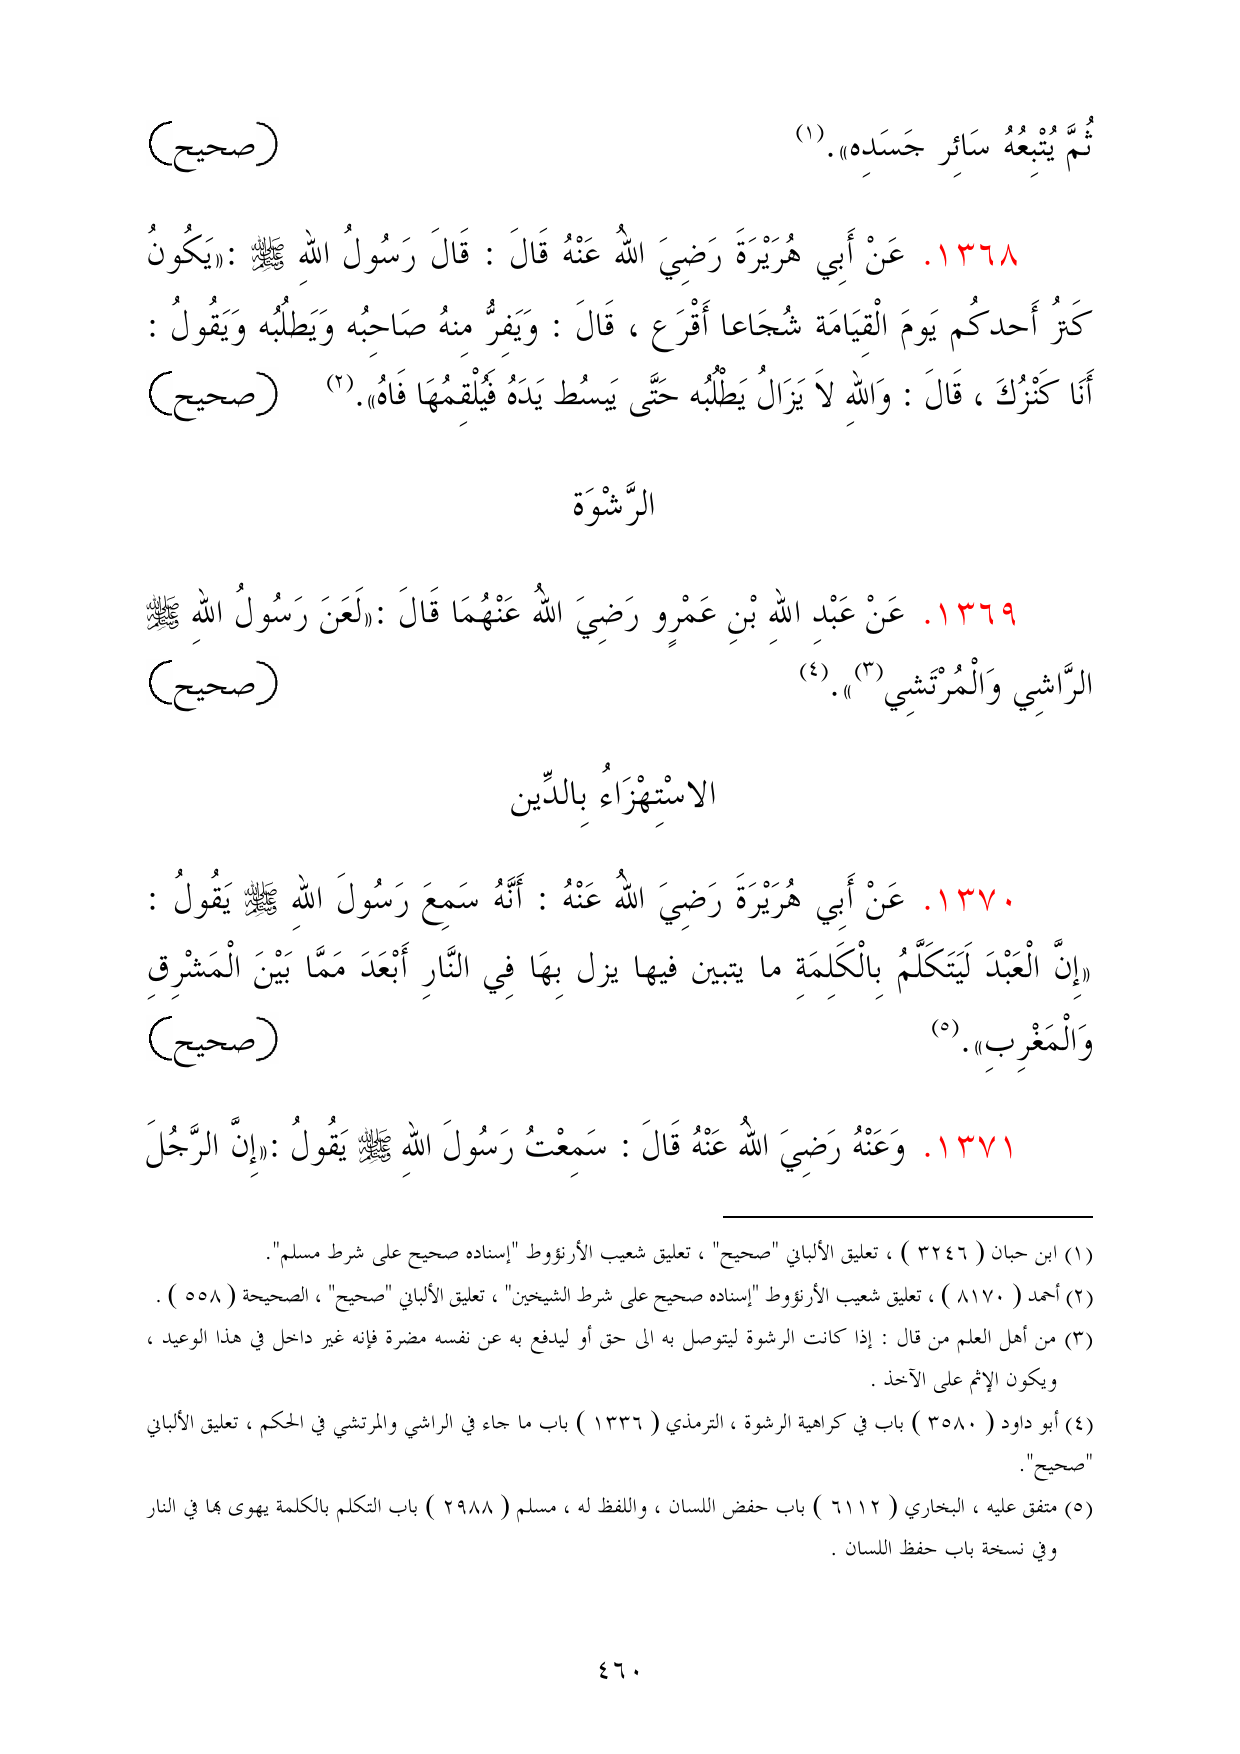 ثُمَّ يُتْبِعُهُ سَائِر جَسَدِه».(١) (صحيح)
١٣٦٨. عَنْ أَبِي هُرَيْرَةَ رَضِيَ اللهُ عَنْهُ قَالَ : قَالَ رَسُولُ اللهِ ﷺ :«يَكُونُ
كَنْزُ أَحدكُم يَومَ الْقِيَامَة شُجَاعا أَقْرَع ، قَالَ : وَيَفِرُّ مِنهُ صَاحِبُه وَيَطلُبُه وَيَقُولُ :
أَنَا كَنْزُكَ ، قَالَ : وَاللهِ لاَ يَزَالُ يَطْلُبُه حَتَّى يَبسُط يَدَهُ فَيُلْقِمُهَا فَاهُ».(٢) (صحيح)
الرَّشْوَة
١٣٦٩. عَنْ عَبْدِ اللهِ بْنِ عَمْرٍو رَضِيَ اللهُ عَنْهُمَا قَالَ :«لَعَنَ رَسُولُ اللهِ ﷺ
الرَّاشِي وَالْمُرْتَشِي(٣)».(٤) (صحيح)
الاسْتِهْزَاءُ بِالدِّين
١٣٧٠. عَنْ أَبِي هُرَيْرَةَ رَضِيَ اللهُ عَنْهُ : أَنَّهُ سَمِعَ رَسُولَ اللهِ ﷺ يَقُولُ :
«إِنَّ الْعَبْدَ لَيَتَكَلَّمُ بِالْكَلِمَةِ ما يتبين فيها يزل بِهَا فِي النَّارِ أَبْعَدَ مَمَّا بَيْنَ الْمَشْرِقِ
وَالْمَغْرِبِ».(٥) (صحيح)
١٣٧١. وَعَنْهُ رَضِيَ اللهُ عَنْهُ قَالَ : سَمِعْتُ رَسُولَ اللهِ ﷺ يَقُولُ :«إِنَّ الرَّجُلَ
(١) ابن حبان ( ٣٢٤٦ ) ، تعليق الألباني "صحيح" ، تعليق شعيب الأرنؤوط "إسناده صحيح على شرط مسلم".
(٢) أحمد ( ٨١٧٠ ) ، تعليق شعيب الأرنؤوط "إسناده صحيح على شرط الشيخين" ، تعليق الألباني "صحيح" ، الصحيحة ( ٥٥٨ ) .
(٣) من أهل العلم من قال : إذا كانت الرشوة ليتوصل به الى حق أو ليدفع به عن نفسه مضرة فإنه غير داخل في هذا الوعيد ،
ويكون الإثم على الآخذ .
(٤) أبو داود ( ٣٥٨٠ ) باب في كراهية الرشوة ، الترمذي ( ١٣٣٦ ) باب ما جاء في الراشي والمرتشي في الحكم ، تعليق الألباني
"صحيح".
(٥) متفق عليه ، البخاري ( ٦١١٢ ) باب حفض اللسان ، واللفظ له ، مسلم ( ٢٩٨٨ ) باب التكلم بالكلمة يهوى بها في النار
وفي نسخة باب حفظ اللسان .
٤٦٠